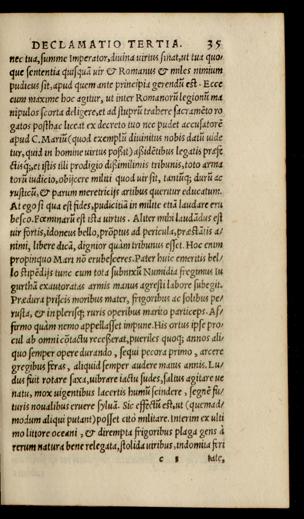 DECLAMATIO TERTIA. 35
nec tua, summe Imperator, diuina uirtus sinat, ut tua quo
que sententia quisquã uir & Romanus & miles nimium
pudicus sit, apud quem ante principia gerendũ est. Ecce
cum maxime hoc agitur, ut inter Romanorũ legionũ ma
nipulos scorta deligere, et ad stuprũ trahere sacramẽto ro
gatos posthac liceat ex decreto tuo nec pudet accusatorẽ
apud C. Mariũ (quod exemplũ diuinitus nobis datũ uide
tur, quid in homine uirtus possit) assidẽtibus legatis præfe
ctisq;, et istis illi prodigio dissimilimis tribunis, toto arma
torũ iudicio, obijcere militi quod uir sit, tanũq; durũ ac
rusticũ, & parum meretricijs artibus queritur educatum.
At ego si qua est fides, pudicitiã in milite etiã laudare eru
besco. Fœminarũ est ista uirtus. Aliter mihi laudãdus est
uir fortis, idoneus bello, prõptus ad pericula, præstãtis a-
nimi, libere dicã, dignior quàm tribunus esset. Hoc enim
propinquo Mari nõ erubesceres. Pater huic emeritis bel-
lo stipẽdijs tunc cum tota subnixũ Numidia fregimus Iu
gurthã exautoratas armis manus agresti labore subegit.
Prædura priscis moribus mater, frigoribus ac solibus pe-
rusta, & in plerisq; ruris operibus marito particeps. Af-
firmo quàm nemo appellasset impune. His ortus ipse pro-
cul ab omni cõtactu recesserat, pueriles quoq; annos ali-
quo semper opere durando, sequi pecora primo, arcere
gregibus feras, aliquid semper audere maius annis. Lu-
dus fuit rotare saxa, uibrare iactu sudes, saltus agitare ue
natu, mox uigentibus lacertis humũ scindere, segnẽ fu-
turis noualibus eruere syluã. Sic effectũ est, ut (quemad-
modum aliqui putant) posset citò militare. Interim ex ulti
mo littore oceani, & dirempta frigoribus plaga gens à
rerum natura bene relegata, stolida uiribus, indomita feri
c 3 tate,